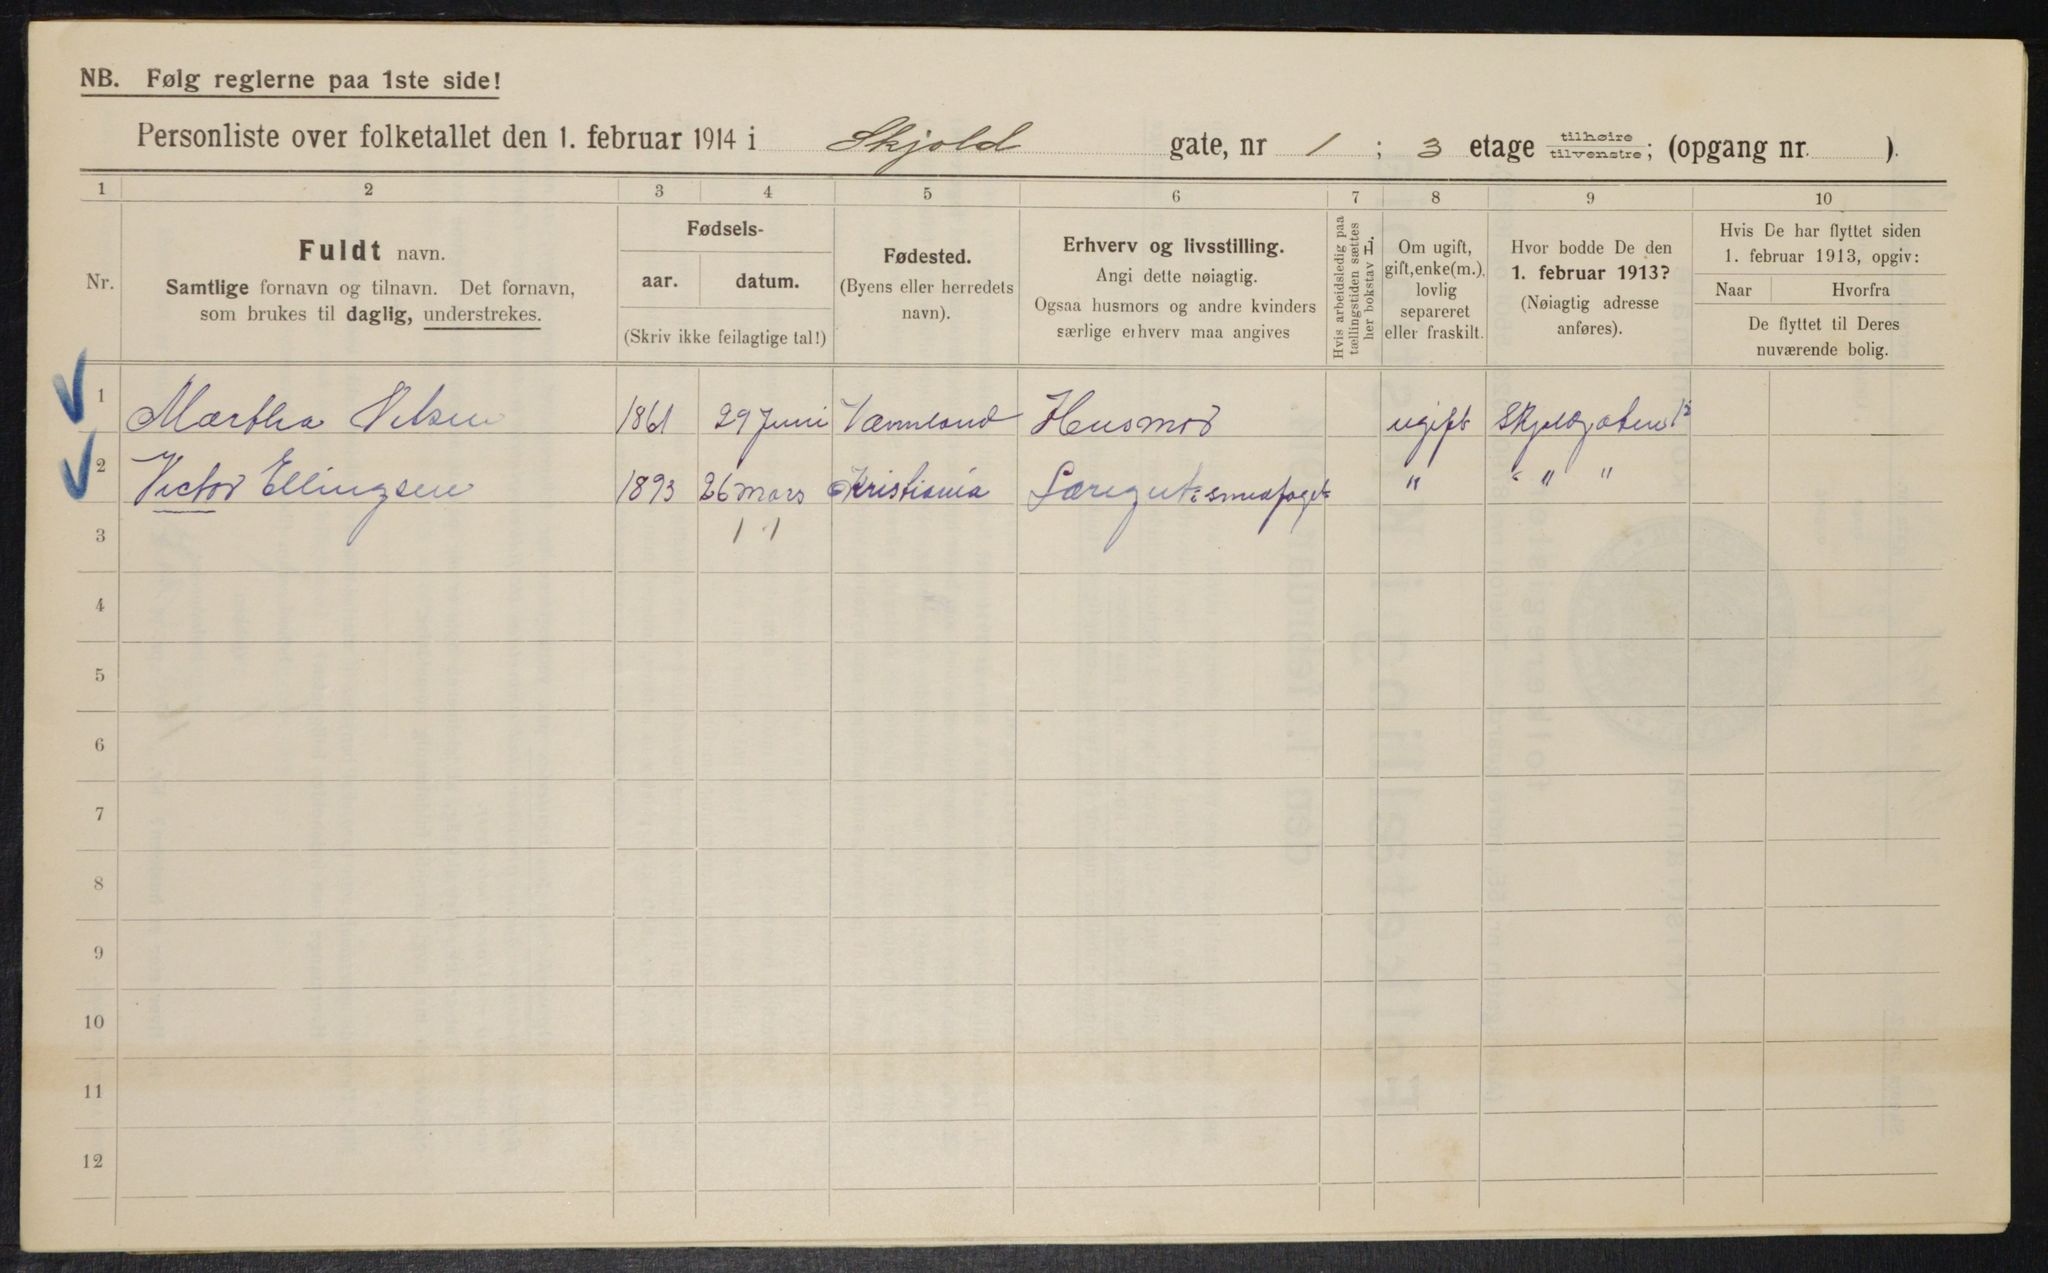 NB. Følg reglerne paa 1ste side!
Personliste over folketallet den 1. februar 1914 i Skjold gate, nr 1 ; 3 etage tilhøire tilvenstre; (opgang nr. ).
1 2 3 4 5 6 7 8 9 10
Nr.
Fuldt navn.
Samtlige fornavn og tilnavn. Det fornavn,
som brukes til daglig, understrekes.
Fødsels-
aar. datum.
(Skriv ikke feilagtige tal!)
Fødested.
(Byens eller herredets
navn).
Erhverv og livsstilling.
Angi dette nøiagtig.
Ogsaa husmors og andre kvinders
særlige erhverv maa angives
Hvis arbeidsledig paa
tællingstiden sættes
her bokstav H.
Om ugift,
gift, enke(m.),
lovlig
separeret
eller fraskilt.
Hvor bodde De den
1. februar 1913?
(Nøiagtig adresse
anføres).
Hvis De har flyttet siden
1. februar 1913, opgiv:
Naar Hvorfra
De flyttet til Deres
nuværende bolig.
1 Martha Nilsen 1861 29 Juni Værmland Husmor ugift Skjoldgaten
2 Victor Ellingsen 1893 26 mars Kristiania Læregut i smedfaget " " " "
3 1 1
4
5
6
7
8
9
10
11
12